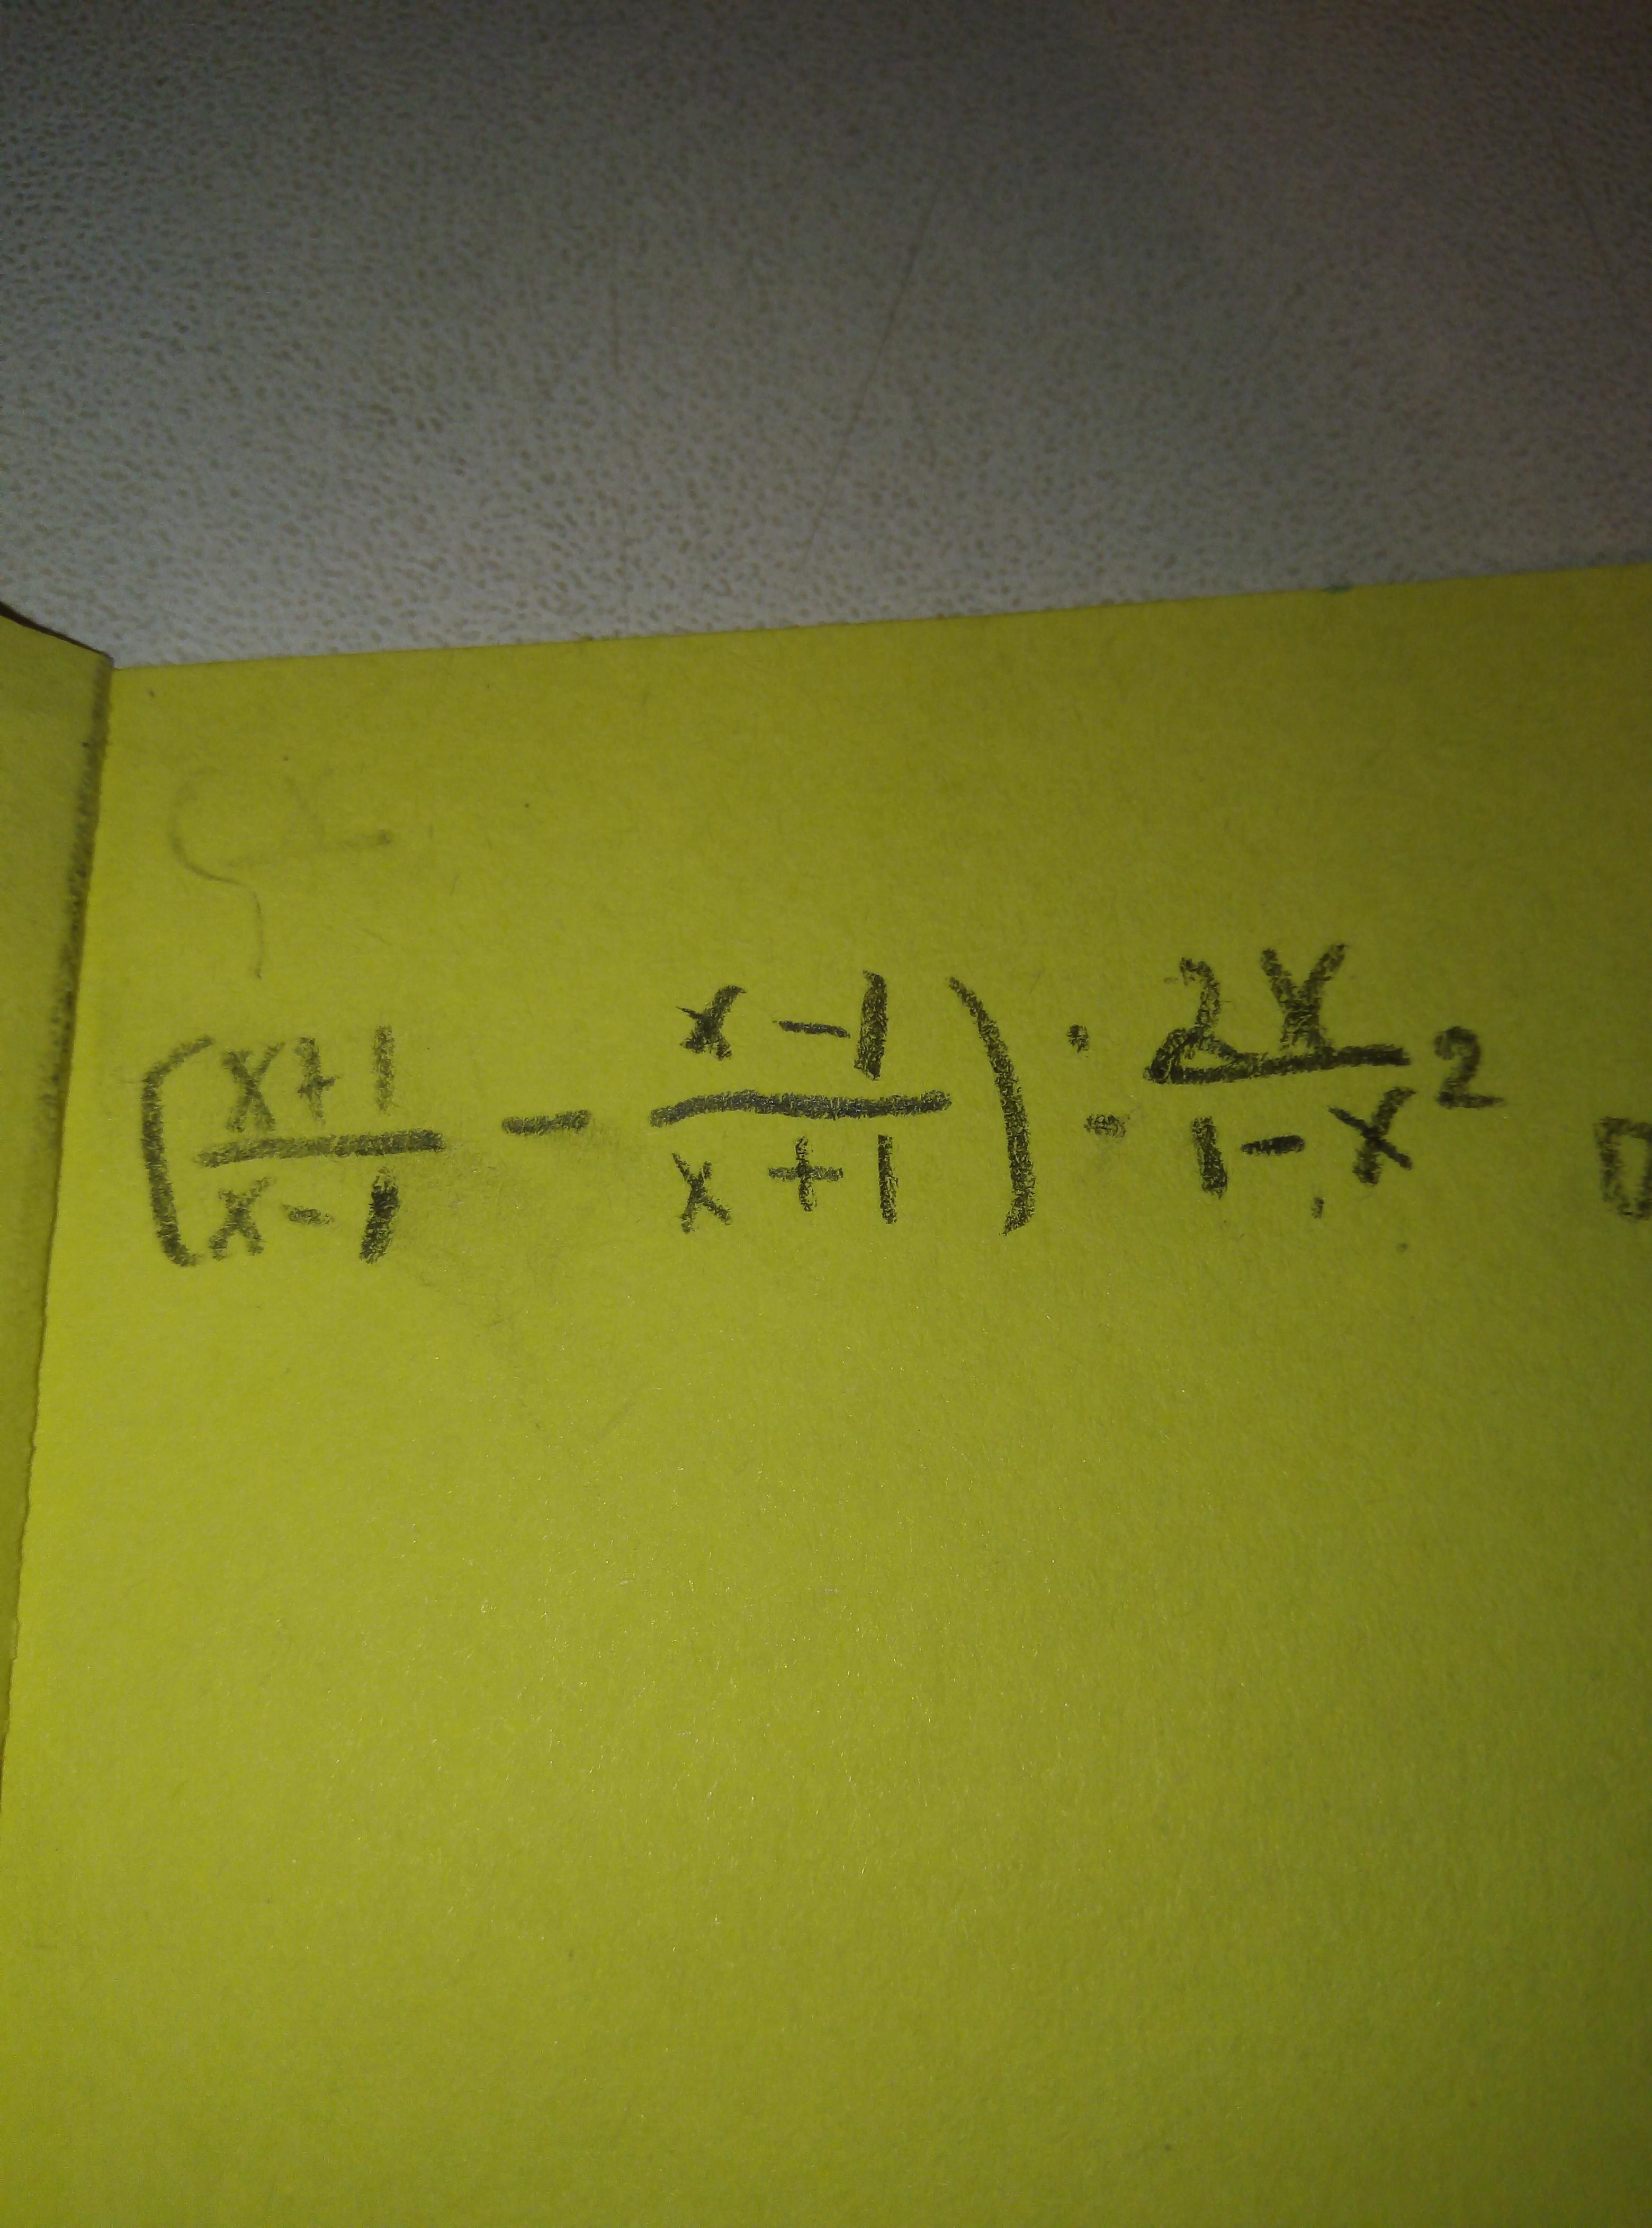 (x+1/x-1 - x-1/x+1) : 2x/1-x²